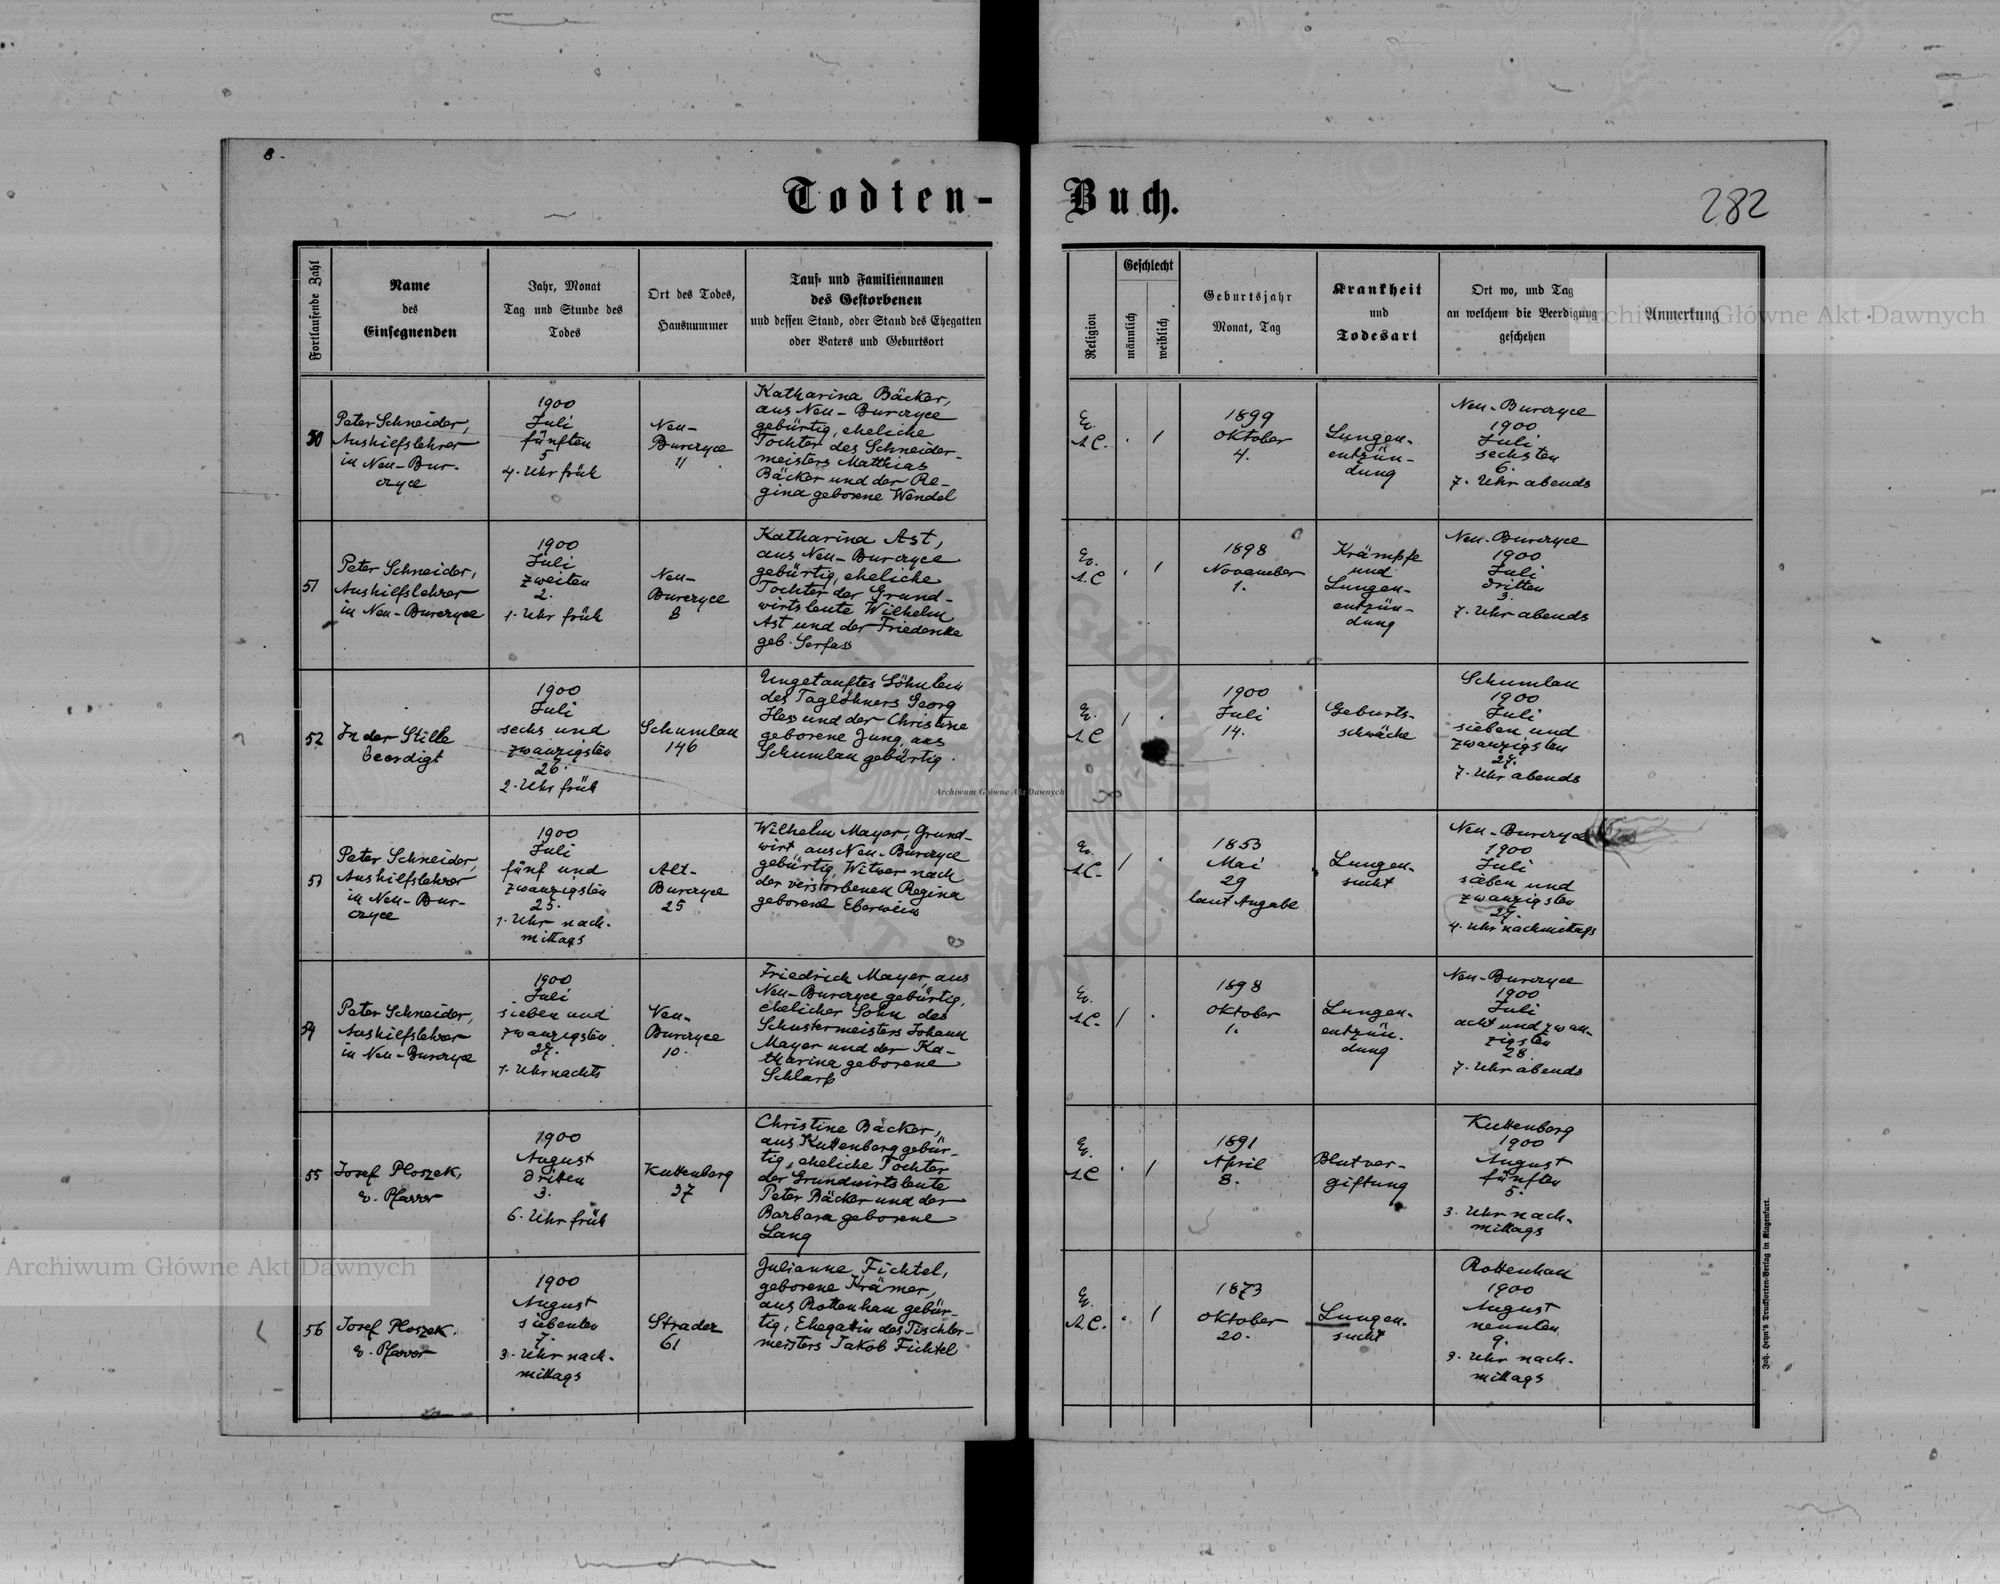 8.
Todten-
Buch.
282
Fortlaufende Zahl
Name
des
Einsegnenden
Jahr, Monat
Tag und Stunde des
Todes
Ort des Todes,
Hausnummer
Tauf- und Familiennamen
des Gestorbenen
und dessen Stand, oder Stand des Ehegatten
oder Vaters und Geburtsort
Religion
Geschlecht
männlich
weiblich
Geburtsjahr
Monat, Tag
Krankheit
und
Todesart
Ort wo, und Tag
an welchem die Beerdigung
geschehen
Anmerkung
50
Peter Schneider,
Aushilfslehrer
in Neu-Bur-
czyce
1900
Juli
fünften
5
4. Uhr früh
Neu-
Burczyce
11
Katharina Bäcker,
aus Neu-Burczyce
gebürtig, eheliche
Tochter des Schneider-
meisters Matthias
Bäcker und der Re-
gina geborene Wendel
Ev.
A.C.
1899
Oktober
4.
Lungen-
entzün-
dung
Neu-Burczyce
1900
Juli
sechsten
6.
7. Uhr abends
51
Peter Schneider,
Aushilfslehrer
in Neu-Burczyce
1900
Juli
zweiten
2.
1. Uhr früh
Neu-
Burczyce
8
Katharina Ast,
aus Neu-Burczyce
gebürtig, eheliche
Tochter der Grund-
wirtsleute Wilhelm
Ast und der Friederike
geb. Serfass
Ev.
A.C
1898
November
1.
Krämpfe
und
Lungen-
entzün-
dung
Neu-Burczyce
1900
Juli
dritten
3.
7. Uhr abends
52
In der Stille
beerdigt
1900
Juli
sechs und
zwanzigsten
26.
2. Uhr früh
Schumlau
146
Ungetauftes Söhnlein
des Taglöhners Georg
Hess und der Christine
geborene Jung, aus
Schumlau gebürtig.
Ev.
A.C
1900
Juli
14.
Geburts-
schwäche
Schumlau
1900
Juli
sieben und
zwanzigsten
27.
7. Uhr abends
53
Peter Schneider,
Aushilfslehrer
in Neu-Bur-
czyce
1900
Juli
fünf und
zwanzigsten
25.
1. Uhr nach-
mittags
Alt-
Burczyce
25
Wilhelm Mayer, Grund-
wirt aus Neu-Burczyce
gebürtig, Witwer nach
der verstorbenen Regina
geborene Eberwein
Ev.
A.C.
1853
Mai
29
laut Angabe
Lungen-
sucht
Neu-Burczyce
1900
Juli
sieben und
zwanzigsten
27.
4. Uhr nachmittags
54
Peter Schneider,
Aushilfslehrer
in Neu-Burczyce
1900
Juli
sieben und
zwanzigsten
27.
1. Uhr nachts
Neu-
Burczyce
10.
Friedrich Mayer, aus
Neu-Burczyce gebürtig,
ehelicher Sohn des
Schustermeisters Johann
Mayer und der Ka-
tharina geborene
Schlarp
Ev.
A.C.
1898
Oktober
1.
Lungen-
entzün-
dung
Neu-Burczyce
1900
Juli
acht und zwan-
zigsten
28.
7. Uhr abends
55
Josef Ploszek,
ev. Pfarrer
1900
August
dritten
3.
6. Uhr früh
Kuttenberg
37
Christine Bäcker,
aus Kuttenberg gebür-
tig, eheliche Tochter
der Grundwirtsleute
Peter Bäcker und der
Barbara geborene
Lang
Ev.
A.C
1891
April
8.
Blutver-
giftung
Kuttenberg
1900
August
fünften
5.
3. Uhr nach-
mittags
56
Josef Ploszek.
ev. Pfarrer
1900
August
siebenten
7.
3. Uhr nach-
mittags
Stradez
61
Julianne Fichtel,
geborene Krämer,
aus Rottenhan gebür-
tig, Ehegattin des Tischler-
meisters Jakob Fichtel
Ev.
A.C.
1873
Oktober
20.
Lungen-
sucht
Rottenhan
1900
August
neunten
9.
3. Uhr nach-
mittags
Joh. Heyn's Drucksorten-Verlag in Klagenfurt.
Archiwum Główne Akt Dawnych
Archiwum Główne Akt Dawnych
Archiwum Główne Akt Dawnych